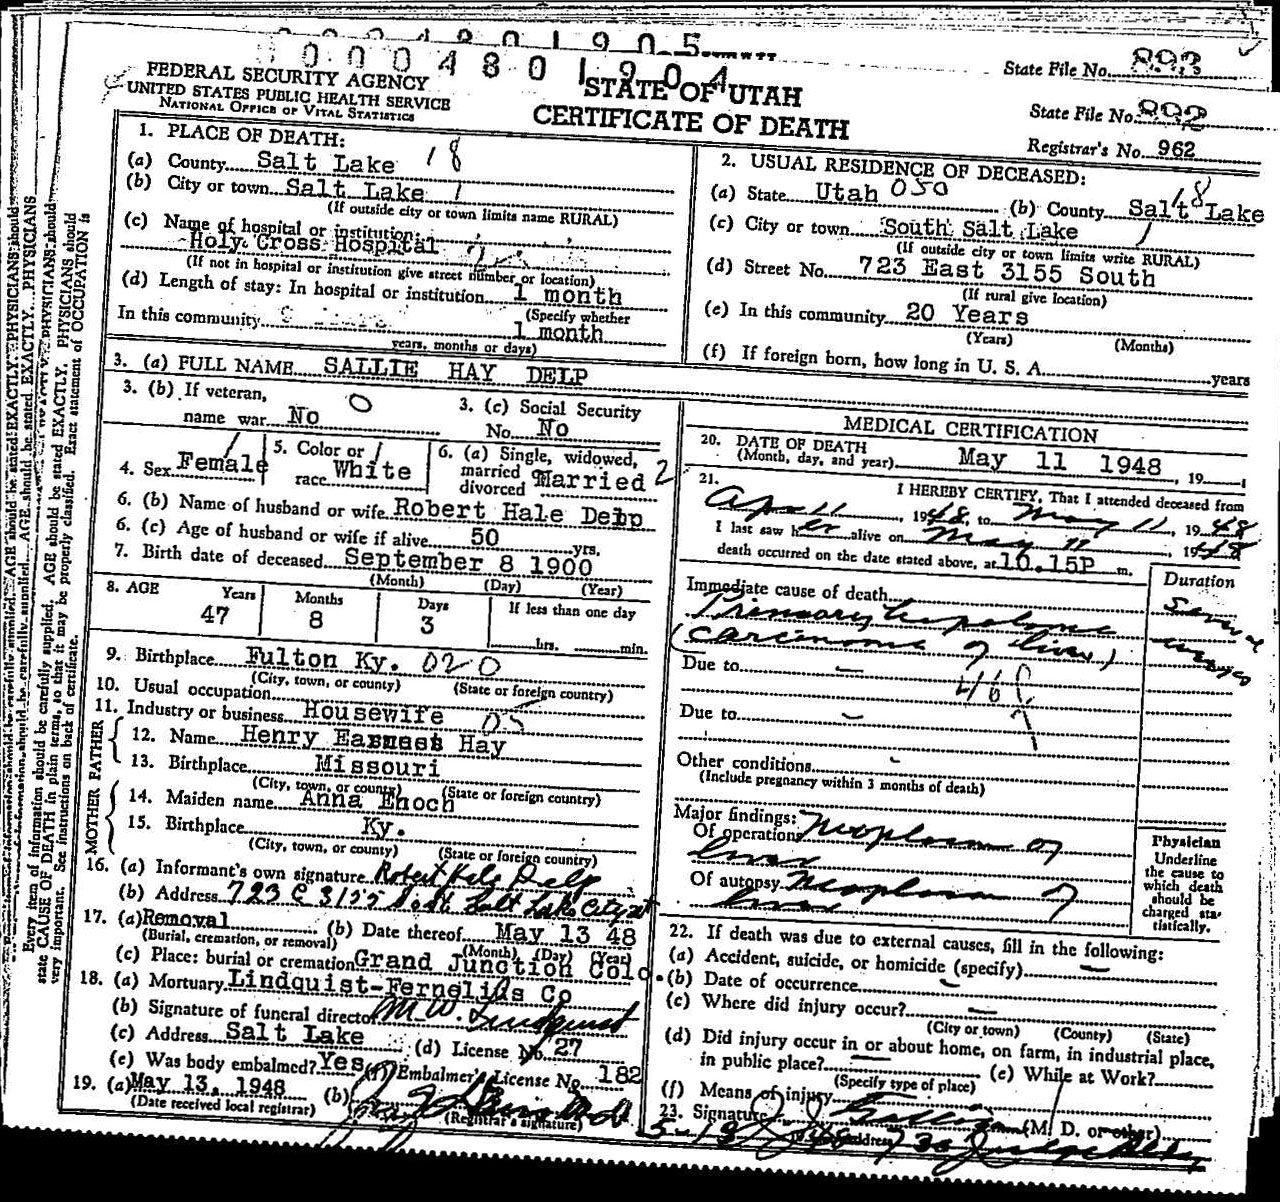 0004801905
0004801904
State File No. 893
FEDERAL SECURITY AGENCY
UNITED STATES PUBLIC HEALTH SERVICE
NATIONAL OFFICE OF VITAL STATISTICS
STATE OF UTAH
CERTIFICATE OF DEATH
State File No. 892
Registrar's No. 962
1. PLACE OF DEATH:
(a) County Salt Lake 18
(b) City or town Salt Lake 1
(If outside city or town limits name RURAL)
(c) Name of hospital or institution:
Holy Cross Hospital
(If not in hospital or institution give street number or location)
(d) Length of stay: In hospital or institution 1 month
(Specify whether
In this community 1 month
years, months or days)
2. USUAL RESIDENCE OF DECEASED:
(a) State Utah 050 (b) County Salt Lake 18
(c) City or town South Salt Lake 1
(If outside city or town limits write RURAL)
(d) Street No. 723 East 3155 South
(If rural give location)
(e) In this community 20 Years
(Years) (Months)
(f) If foreign born, how long in U. S. A. years
3. (a) FULL NAME SALLIE HAY DELP
3. (b) If veteran, 0
name war No
3. (c) Social Security
No. No
4. Sex Female
5. Color or
race White
6. (a) Single, widowed,
married
divorced Married 2
6. (b) Name of husband or wife Robert Hale Delp
6. (c) Age of husband or wife if alive 50 yrs.
7. Birth date of deceased September 8 1900
(Month) (Day) (Year)
8. AGE Years Months Days If less than one day
47 8 3 hrs. min.
9. Birthplace Fulton Ky. 020
(City, town, or county) (State or foreign country)
10. Usual occupation
11. Industry or business Housewife
FATHER
12. Name Henry Hay
13. Birthplace Missouri
(City, town, or county) (State or foreign country)
MOTHER
14. Maiden name Anna Enoch
15. Birthplace Ky.
(City, town, or county) (State or foreign country)
16. (a) Informant's own signature Robert Hale Delp
(b) Address 723 E 3155 South Salt Lake City ut
17. (a) Removal (b) Date thereof May 13 48
(Burial, cremation, or removal) (Month) (Day) (Year)
(c) Place: burial or cremation Grand Junction Colo.
18. (a) Mortuary Lindquist-Fernelius Co
(b) Signature of funeral director M. W. Lindquist
(c) Address Salt Lake (d) License No. 27
(e) Was body embalmed? Yes (f) Embalmer's License No. 182
19. (a) May 13, 1948 (b)
(Date received local registrar) (Registrar's signature)
MEDICAL CERTIFICATION
20. DATE OF DEATH
(Month, day, and year) May 11 1948, 19
21. I HEREBY CERTIFY, That I attended deceased from
1948, to May 11, 1948
I last saw her alive on May 11, 1948
death occurred on the date stated above, at 10.15P m.
Immediate cause of death Duration
Primary hepatoma Several
(carcinoma of liver)
Due to
Due to
Other conditions
(Include pregnancy within 3 months of death)
Major findings:
Of operations Neoplasm of
liver
Of autopsy Neoplasm of
liver
Physician
Underline
the cause to
which death
should be
charged sta-
tistically.
22. If death was due to external causes, fill in the following:
(a) Accident, suicide, or homicide (specify)
(b) Date of occurrence
(c) Where did injury occur?
(City or town) (County) (State)
(d) Did injury occur in or about home, on farm, in industrial place,
in public place? (e) While at Work?
(Specify type of place)
(f) Means of injury
23. Signature (M. D. or other)
5-13-48 Address 730 Judge Bldg
Every item of information should be carefully supplied. AGE should be stated EXACTLY. PHYSICIANS should
state CAUSE OF DEATH in plain terms, so that it may be properly classified. Exact statement of OCCUPATION is
very important. See instructions on back of certificate.